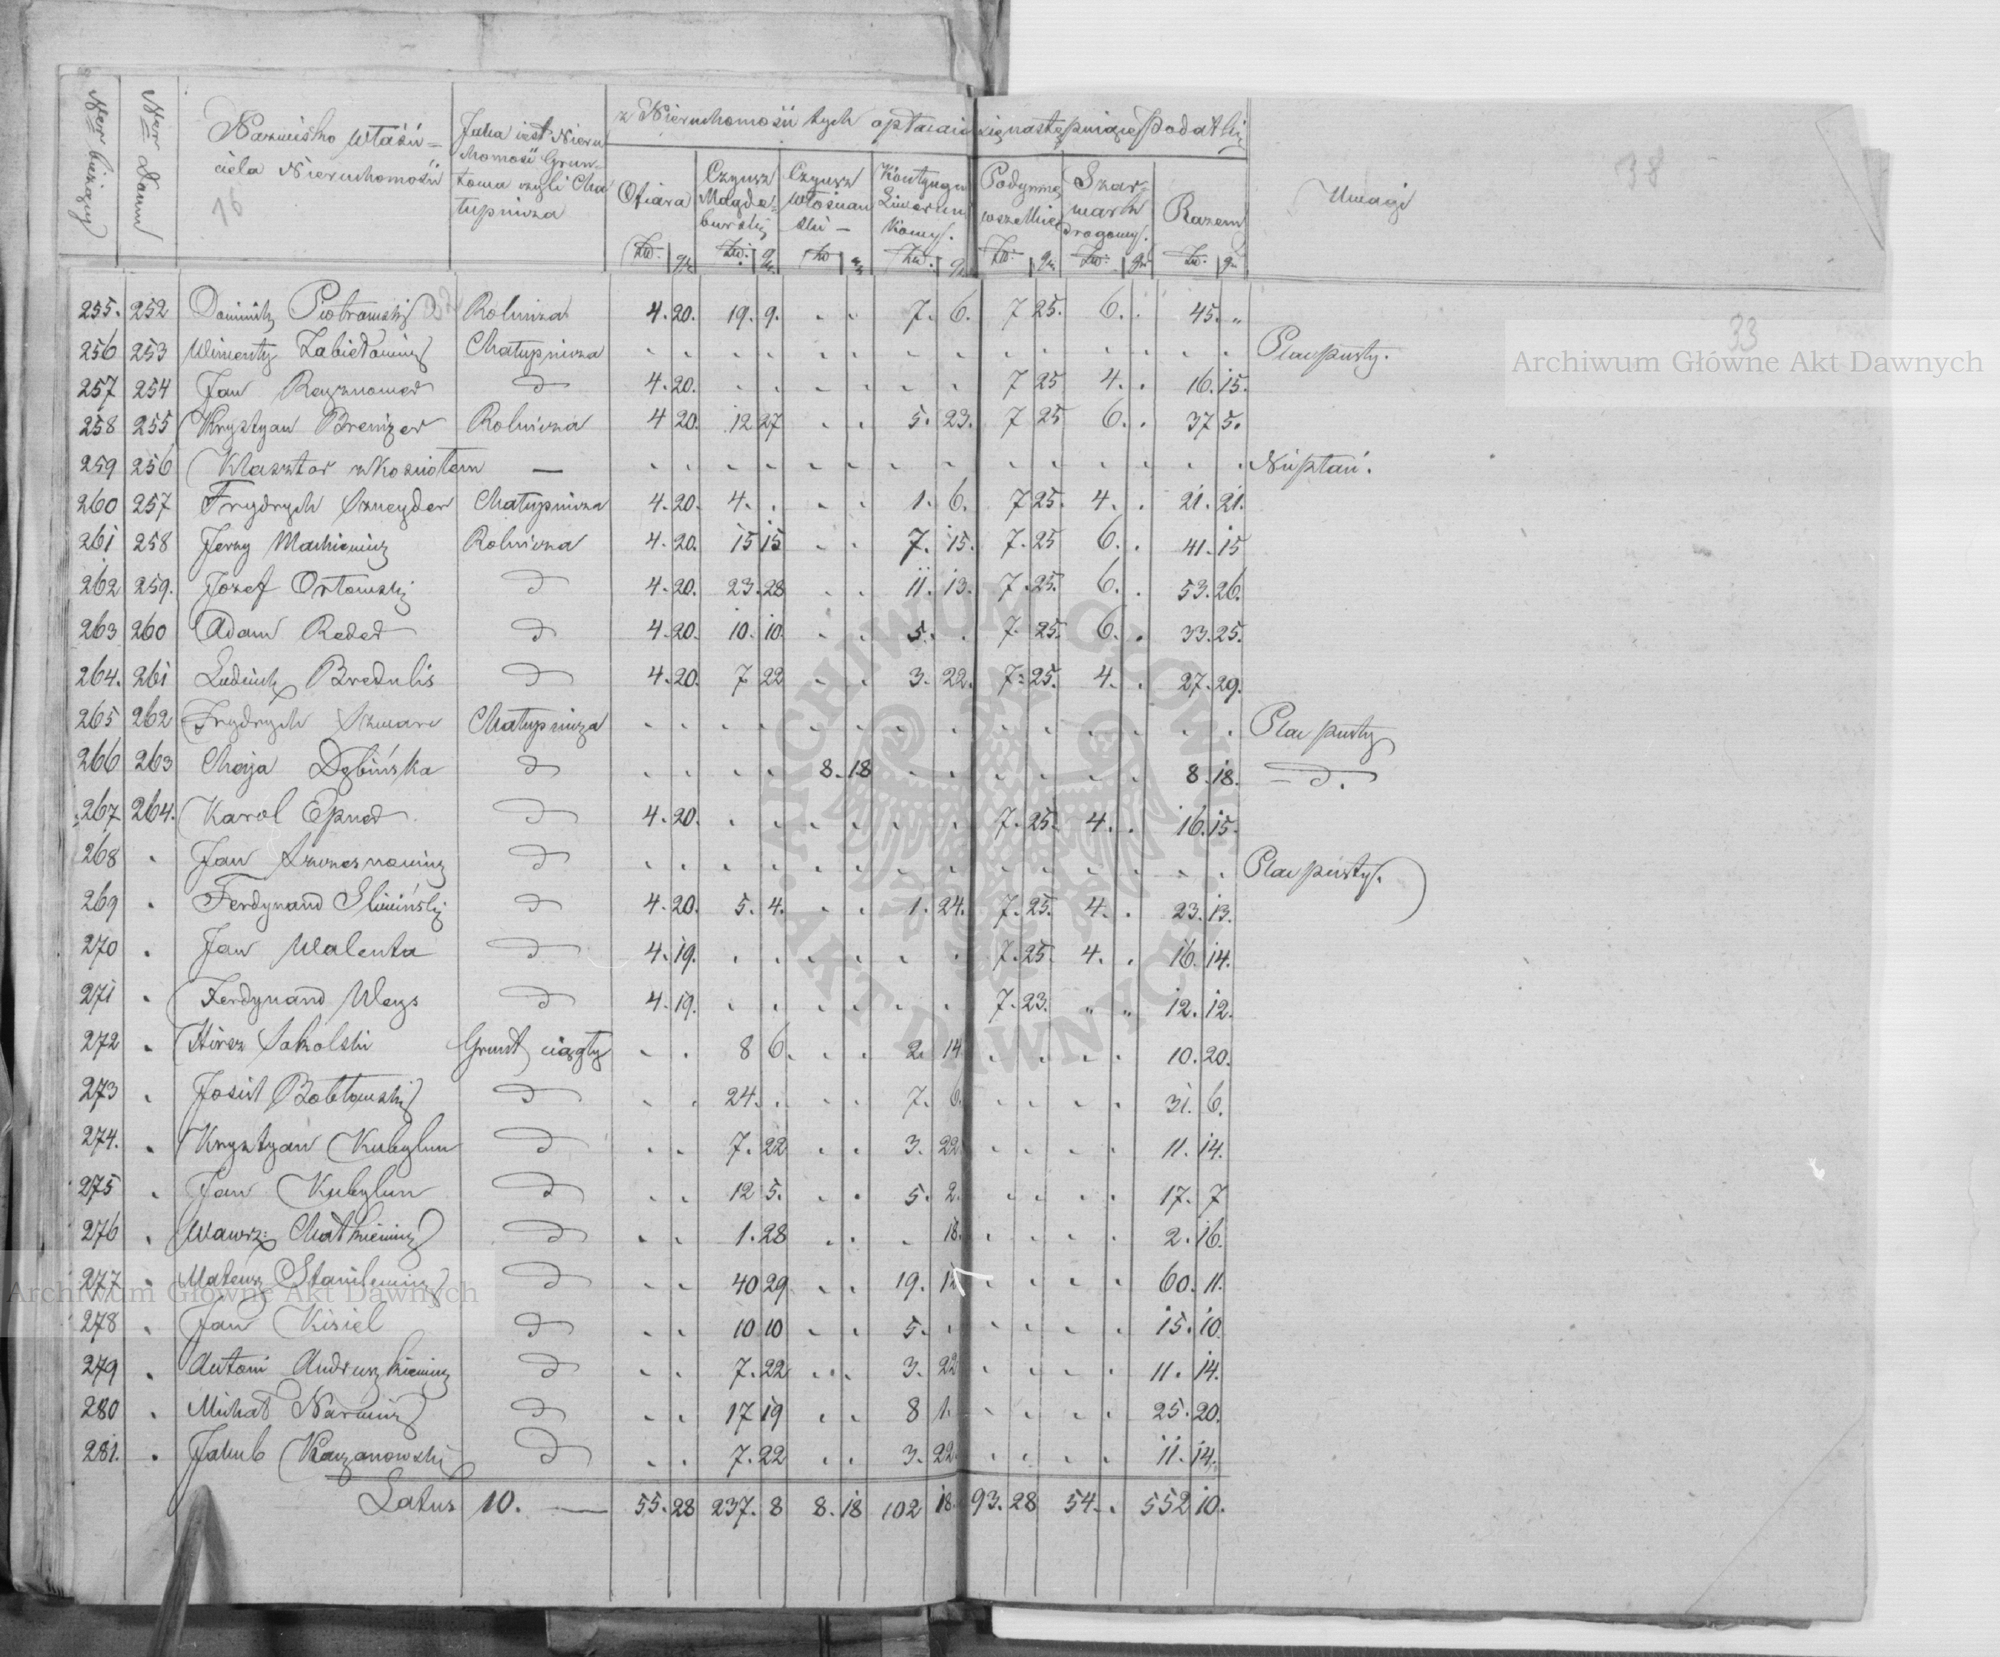 Ner bieżący
Ner Domu
Nazwisko właści=
ciela Nieruchomości
Jaka iest Nieru
chomość Grun=
towa czyli Cha
łupnicza
z Nieruchomości tych opłacaią się następuiące podatki
Ofiara
Czynsz Magde=burski
Czynsz włościan ski —
Kontyngen Liwerun kowy.
Podymne wszelkie
Szar=wark drogowy.
Razem
Uwagi
38
33
Zło. gr. Zło. gr. Zło gr Zło. gr Zło. gr. Zło. gr Zło. gr
255. 252 Dominik Piotrowski Rolnicza 4. 20. 19. 9. „ „ 7. 6. 7 25. 6. . 45. „
256 253 Wincenty Zabiełowicz Chałupnicza „ „ „ „ „ „ „ „ „ „ „ „ „ „ Plac pusty.
257 254 Jan d 4. 20. „ „ „ „ „ „ 7 25 4. . 16. 15.
258 255 Krystyan Brenizer Rolnicza 4 20. 12 27 „ „ 5. 23. 7 25 6. . 37 5.
259 256 Klasztor z Kościołem — „ „ „ „ „ „ „ „ „ „ „ „ „ „ Niepłaci.
260 257 Frydrych Szneyder Chałupnicza 4. 20. 4. . „ „ 1. 6. 7 25. 4. . 21. 21.
261 258 Jerzy Mackiewicz Rolnicza 4. 20. 15 15 „ „ 7. 15. 7. 25 6. . 41. 15
262 259. Jozef Ortowski d 4. 20. 23. 28 „ „ 11. 13. 7. 25. 6. . 53. 26.
263 260 Adam Reder d 4. 20. 10. 10. „ „ 5. . 7. 25. 6. . 33. 25.
264. 261 Ludwik Bredulis d 4. 20. 7 22 „ „ 3. 22. 7. 25. 4. . 27. 29.
265 262 Frydrych Szwarc Chałupnicza „ „ „ „ „ „ „ „ „ „ „ „ „ „ Plac pusty
266 263 Chaja Dębińska d „ „ „ „ 8. 18 „ „ „ „ „ „ 8. 18. — d.
267 264. Karol d 4. 20. „ „ „ „ „ „ 7. 25. 4. . 16. 15.
268 „ Jan d „ „ „ „ „ „ „ „ „ „ „ „ „ „ Plac pusty.
269 „ Ferdynand Sliwiński d 4. 20. 5. 4. „ „ 1. 24. 7. 25. 4. . 23. 13.
270 „ Jan Walenta d 4. 19. „ „ „ „ „ „ 7. 25. 4. . 16. 14.
271 „ Ferdynand Weys d 4. 19. „ „ „ „ „ „ 7. 23. „ „ 12. 12.
272 „ Hirsz Sokolski Grunt ciągły „ „ 8 6. „ „ 2. 14 „ „ „ „ 10. 20.
273 „ Josiel d „ „ 24. . „ „ 7. 6. „ „ „ „ 31. 6.
274. „ Krystyan Kubylun d „ „ 7. 22 „ „ 3. 22. „ „ „ „ 11. 14.
275 „ Jan Kubylun d „ „ 12 5. „ „ 5. 2. „ „ „ „ 17. 7
276 „ Wawrz: d „ „ 1. 28 „ „ „ 18. „ „ „ „ 2. 16.
277 „ Mateusz Stanilewicz d „ „ 40 29 „ „ 19. 12 „ „ „ „ 60. 11.
278 „ Jan Kisiel d „ „ 10 10 „ „ 5. „ „ „ „ „ 15. 10.
279 „ Antoni Andruszkiewicz d „ „ 7. 22 „ „ 3. 22 „ „ „ „ 11. 14.
280 „ Michał Narwicz d „ „ 17 19 „ „ 8 1. „ „ „ „ 25. 20.
281. „ Jakub Kaczanowski d „ „ 7. 22 „ „ 3. 22. „ „ „ „ 11. 14.
Latus 10. — 55. 28 237. 8 8. 18 102 18. 93. 28 54. . 552 10.
Archiwum Główne Akt Dawnych
Archiwum Główne Akt Dawnych
ARCHIWUM GŁÓWNE AKT DAWNYCH